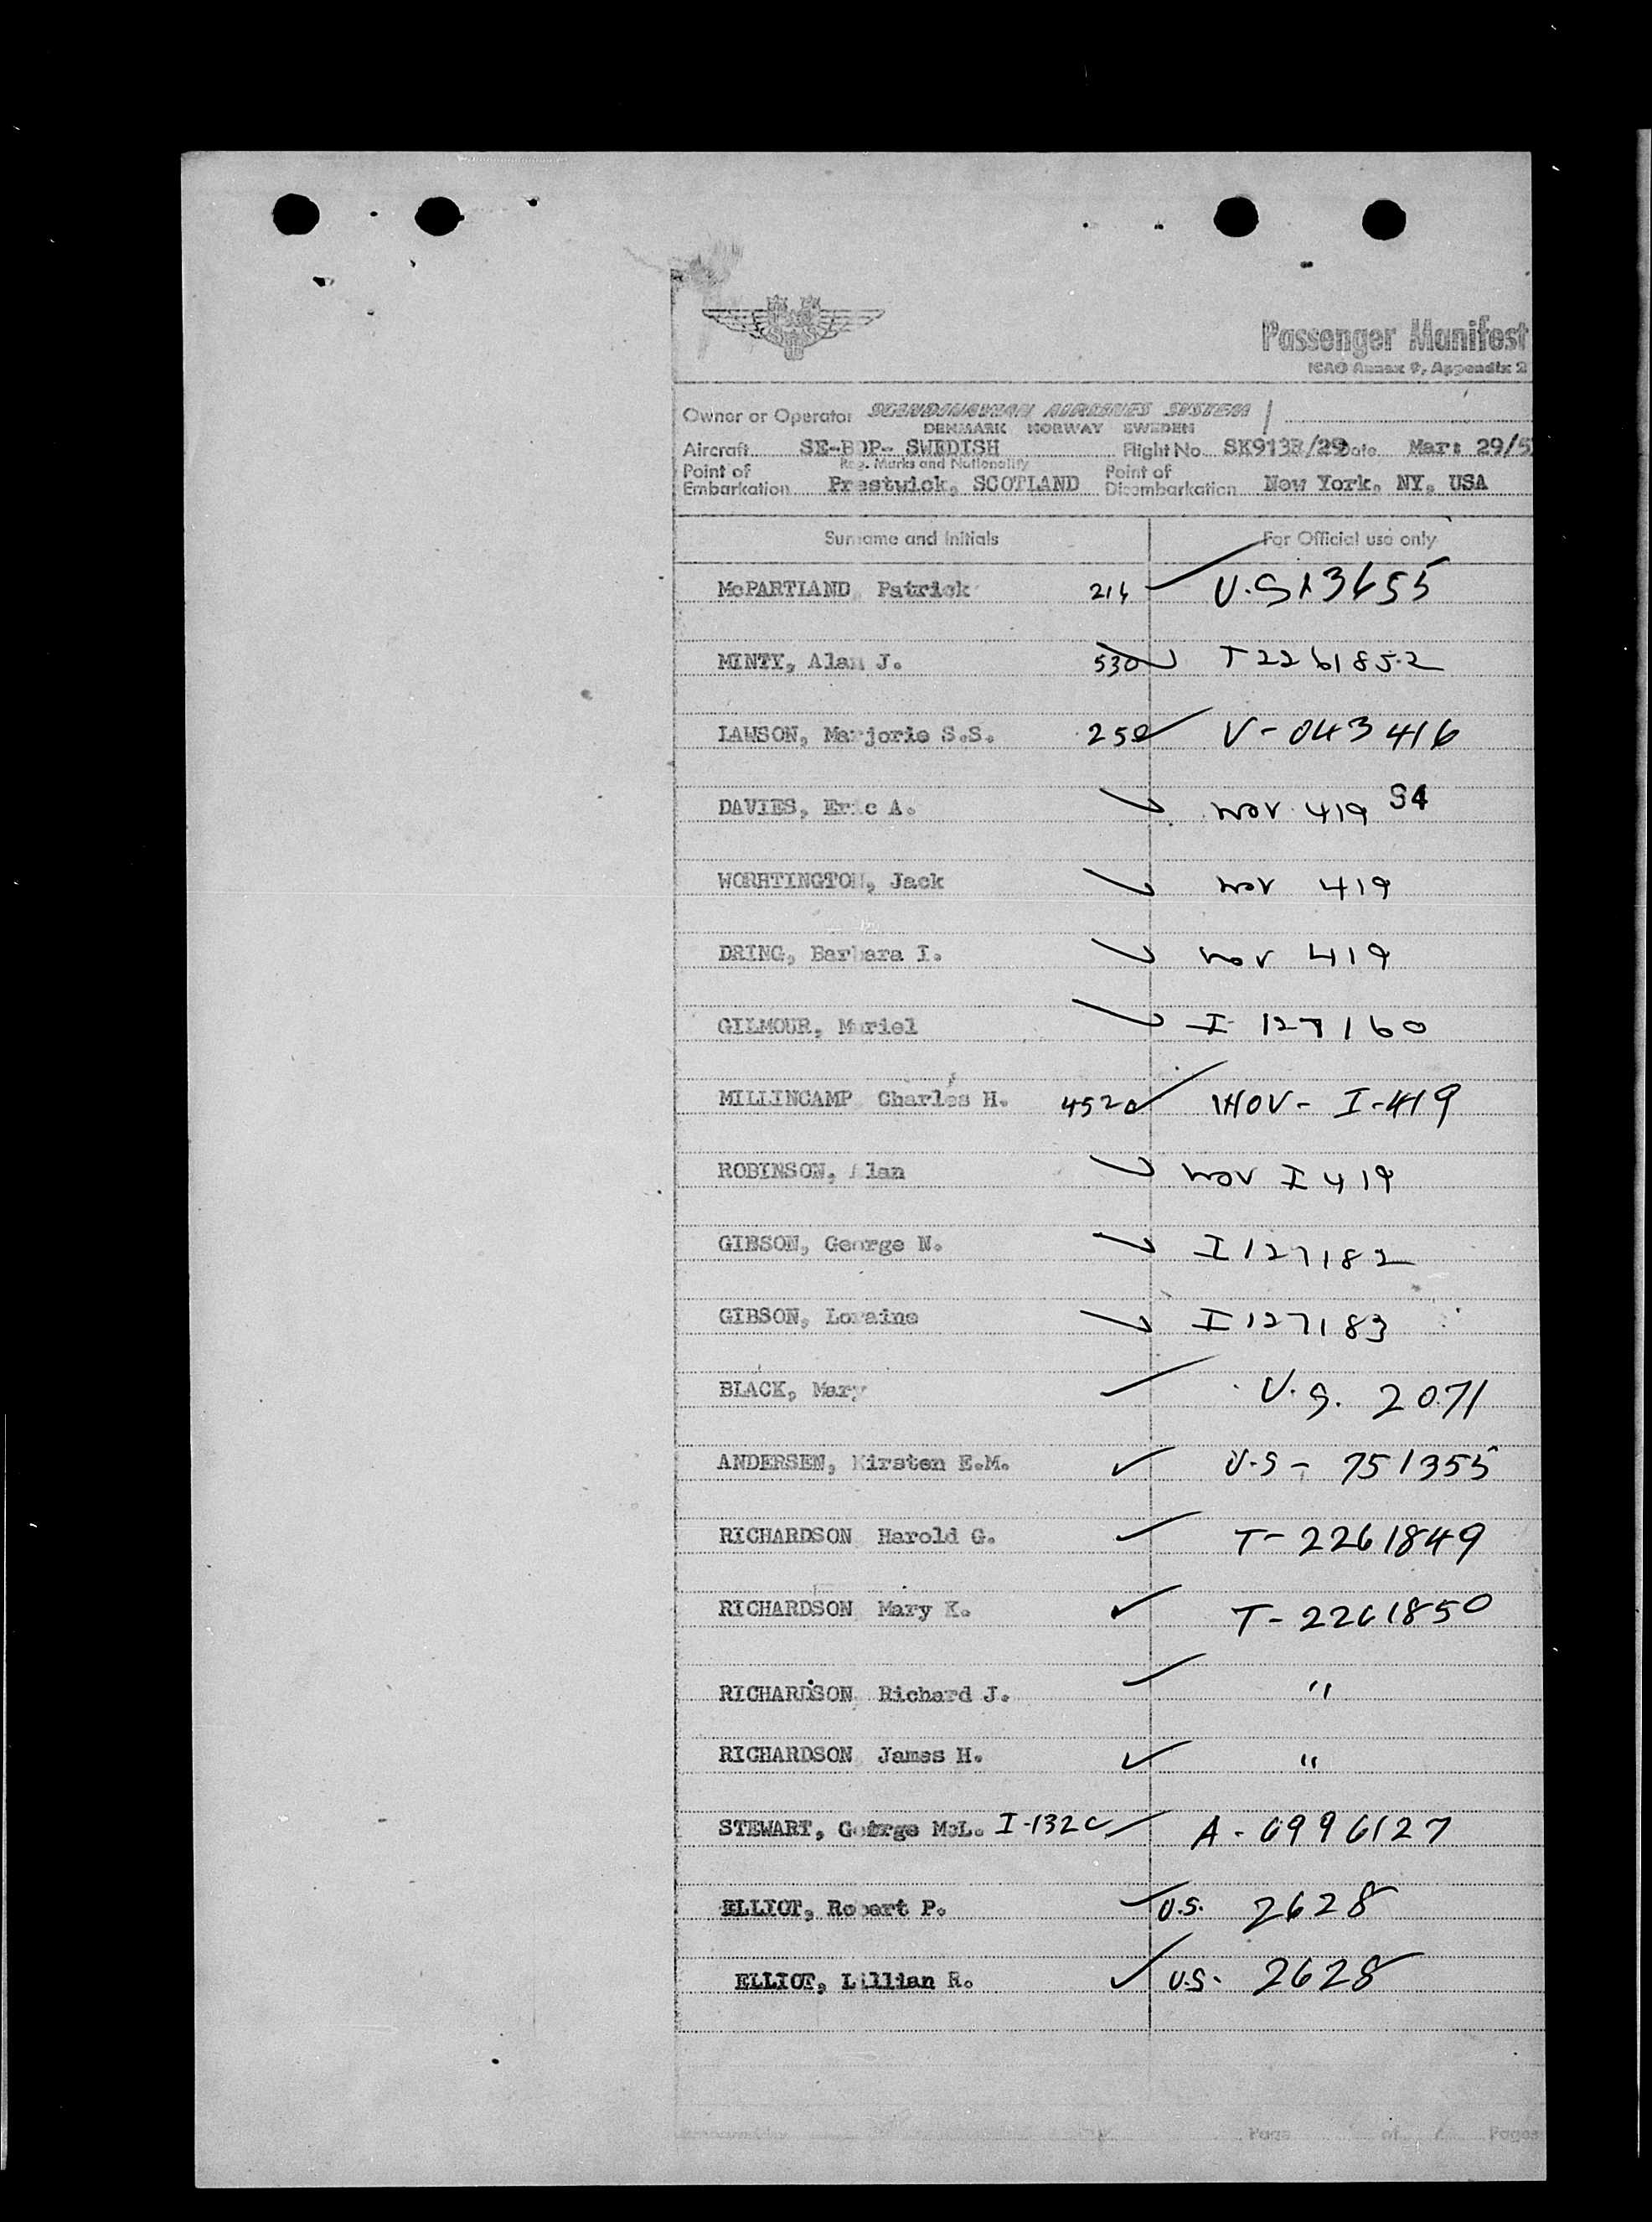 Passenger Manifest
ICAO Annex 9, Appendix 2
Owner or Operator SCANDINAVIAN AIRLINES SYSTEM
DENMARK NORWAY SWEDEN
Aircraft SE-BDP- SWEDISH Flight No. SK913B/29 Date Mar: 29/5
Reg. Marks and Nationality
Point of Embarkation Prestwick, SCOTLAND Point of Disembarkation New York, NY, USA
Surname and Initials For Official use only
McPARTLAND Patrick 214 U.S 13655
MINTY, Alan J. 530 T2261852
LAWSON, Marjorie S.S. 250 V-043416
DAVIES, Eric A. wov 419 S4
WORHTINGTON, Jack wov 419
DRING, Barbara I. wov 419
GILMOUR, Muriel I 127160
MILLINCAMP Charles H. WOV- I-419
ROBINSON, Alan wov I 419
GIBSON, George N. I 127182
GIBSON, Loraine I 127183
BLACK, Mary U.S. 2071
ANDERSEN, Kirsten E.M. U.S - 751355
RICHARDSON Harold G. T-2261849
RICHARDSON Mary K. T-2261850
RICHARDSON Richard J. "
RICHARDSON James H. "
STEWART, George McL. I-132c A-6996127
ELLIOT, Robert P. U.S. 2628
ELLIOT, Lillian R. U.S. 2628
Page of Pages